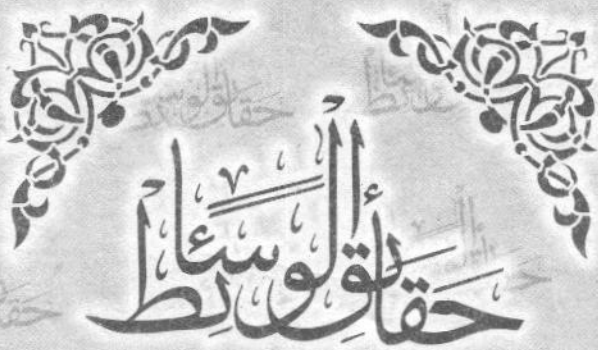 حقائق الوسائط